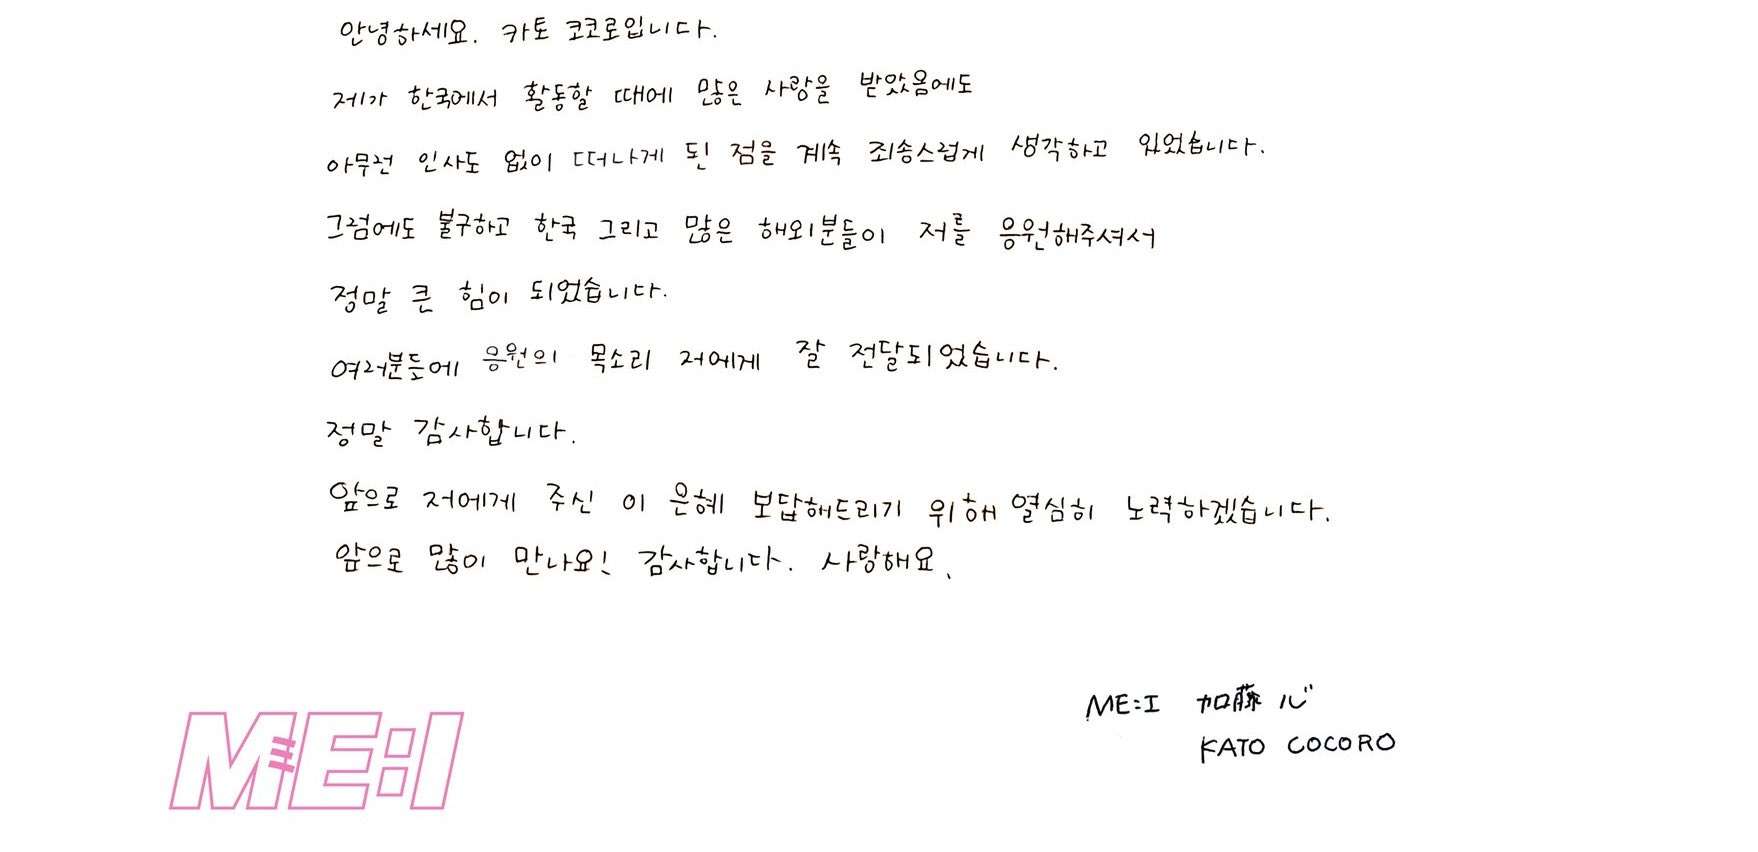 안녕하세요. 카토 코코로입니다.
제가 한국에서 활동할 때에 많은 사랑을 받았음에도
아무런 인사도 없이 떠나게 된 점을 계속 죄송스럽게 생각하고 있었습니다.
그럼에도 불구하고 한국 그리고 많은 해외분들이 저를 응원해주셔서
정말 큰 힘이 되었습니다.
여러분들에 응원의 목소리 저에게 잘 전달되었습니다.
정말 감사합니다.
앞으로 저에게 주신 이 은혜 보답해드리기 위해 열심히 노력하겠습니다.
앞으로 많이 만나요! 감사합니다. 사랑해요.
ME:I 加藤 心
KATO COCORO
ME:I